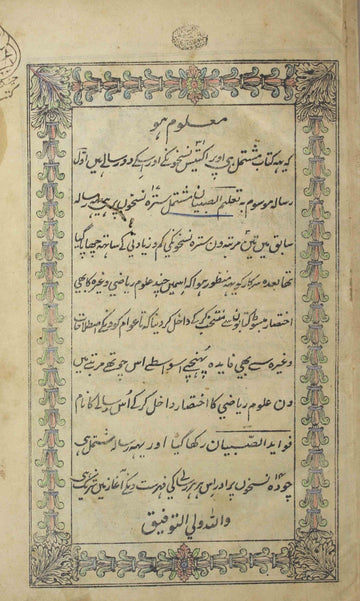 معلوم ہو
کہ یہہ کتاب مشتمل ہی اوپر اکتیس نسخون کے اور اسکے دو رسالے ہین اوّل
رسالہ موسوم بہ تعلیم الصبیان مشتمل سترہ نسخون پر ہی یہہ رسالہ
سابق مین تین مرتبہ ون سترہ نسخون کی کم و زیادتی کے ساتھہ چھاپا گیا
تھا بعدہ سرکار کو یہہ منظور ہوا کہ اسمین چند علوم ریاضی وغیرہ کا بھی
اختصار مبسوط کتابون سے منتخب کر کے داخل کر دینا کہ تا عوام کو ونکے مصطلحات
وغیرہ سے بھی فایدہ پہنچے اسواسطے اس چوتھے مرتبے مین
ون علوم ریاضی کا اختصار داخل کر کے اُس رسالے کا نام
فواید الصبیان رکھا گیا اور یہہ رسالہ مشتمل ہی
چودہ نسخون پر اور اس ہر رسالے کی فہرست ونکے آغاز مین تحریر ہی
واللہ ولی التوفیق